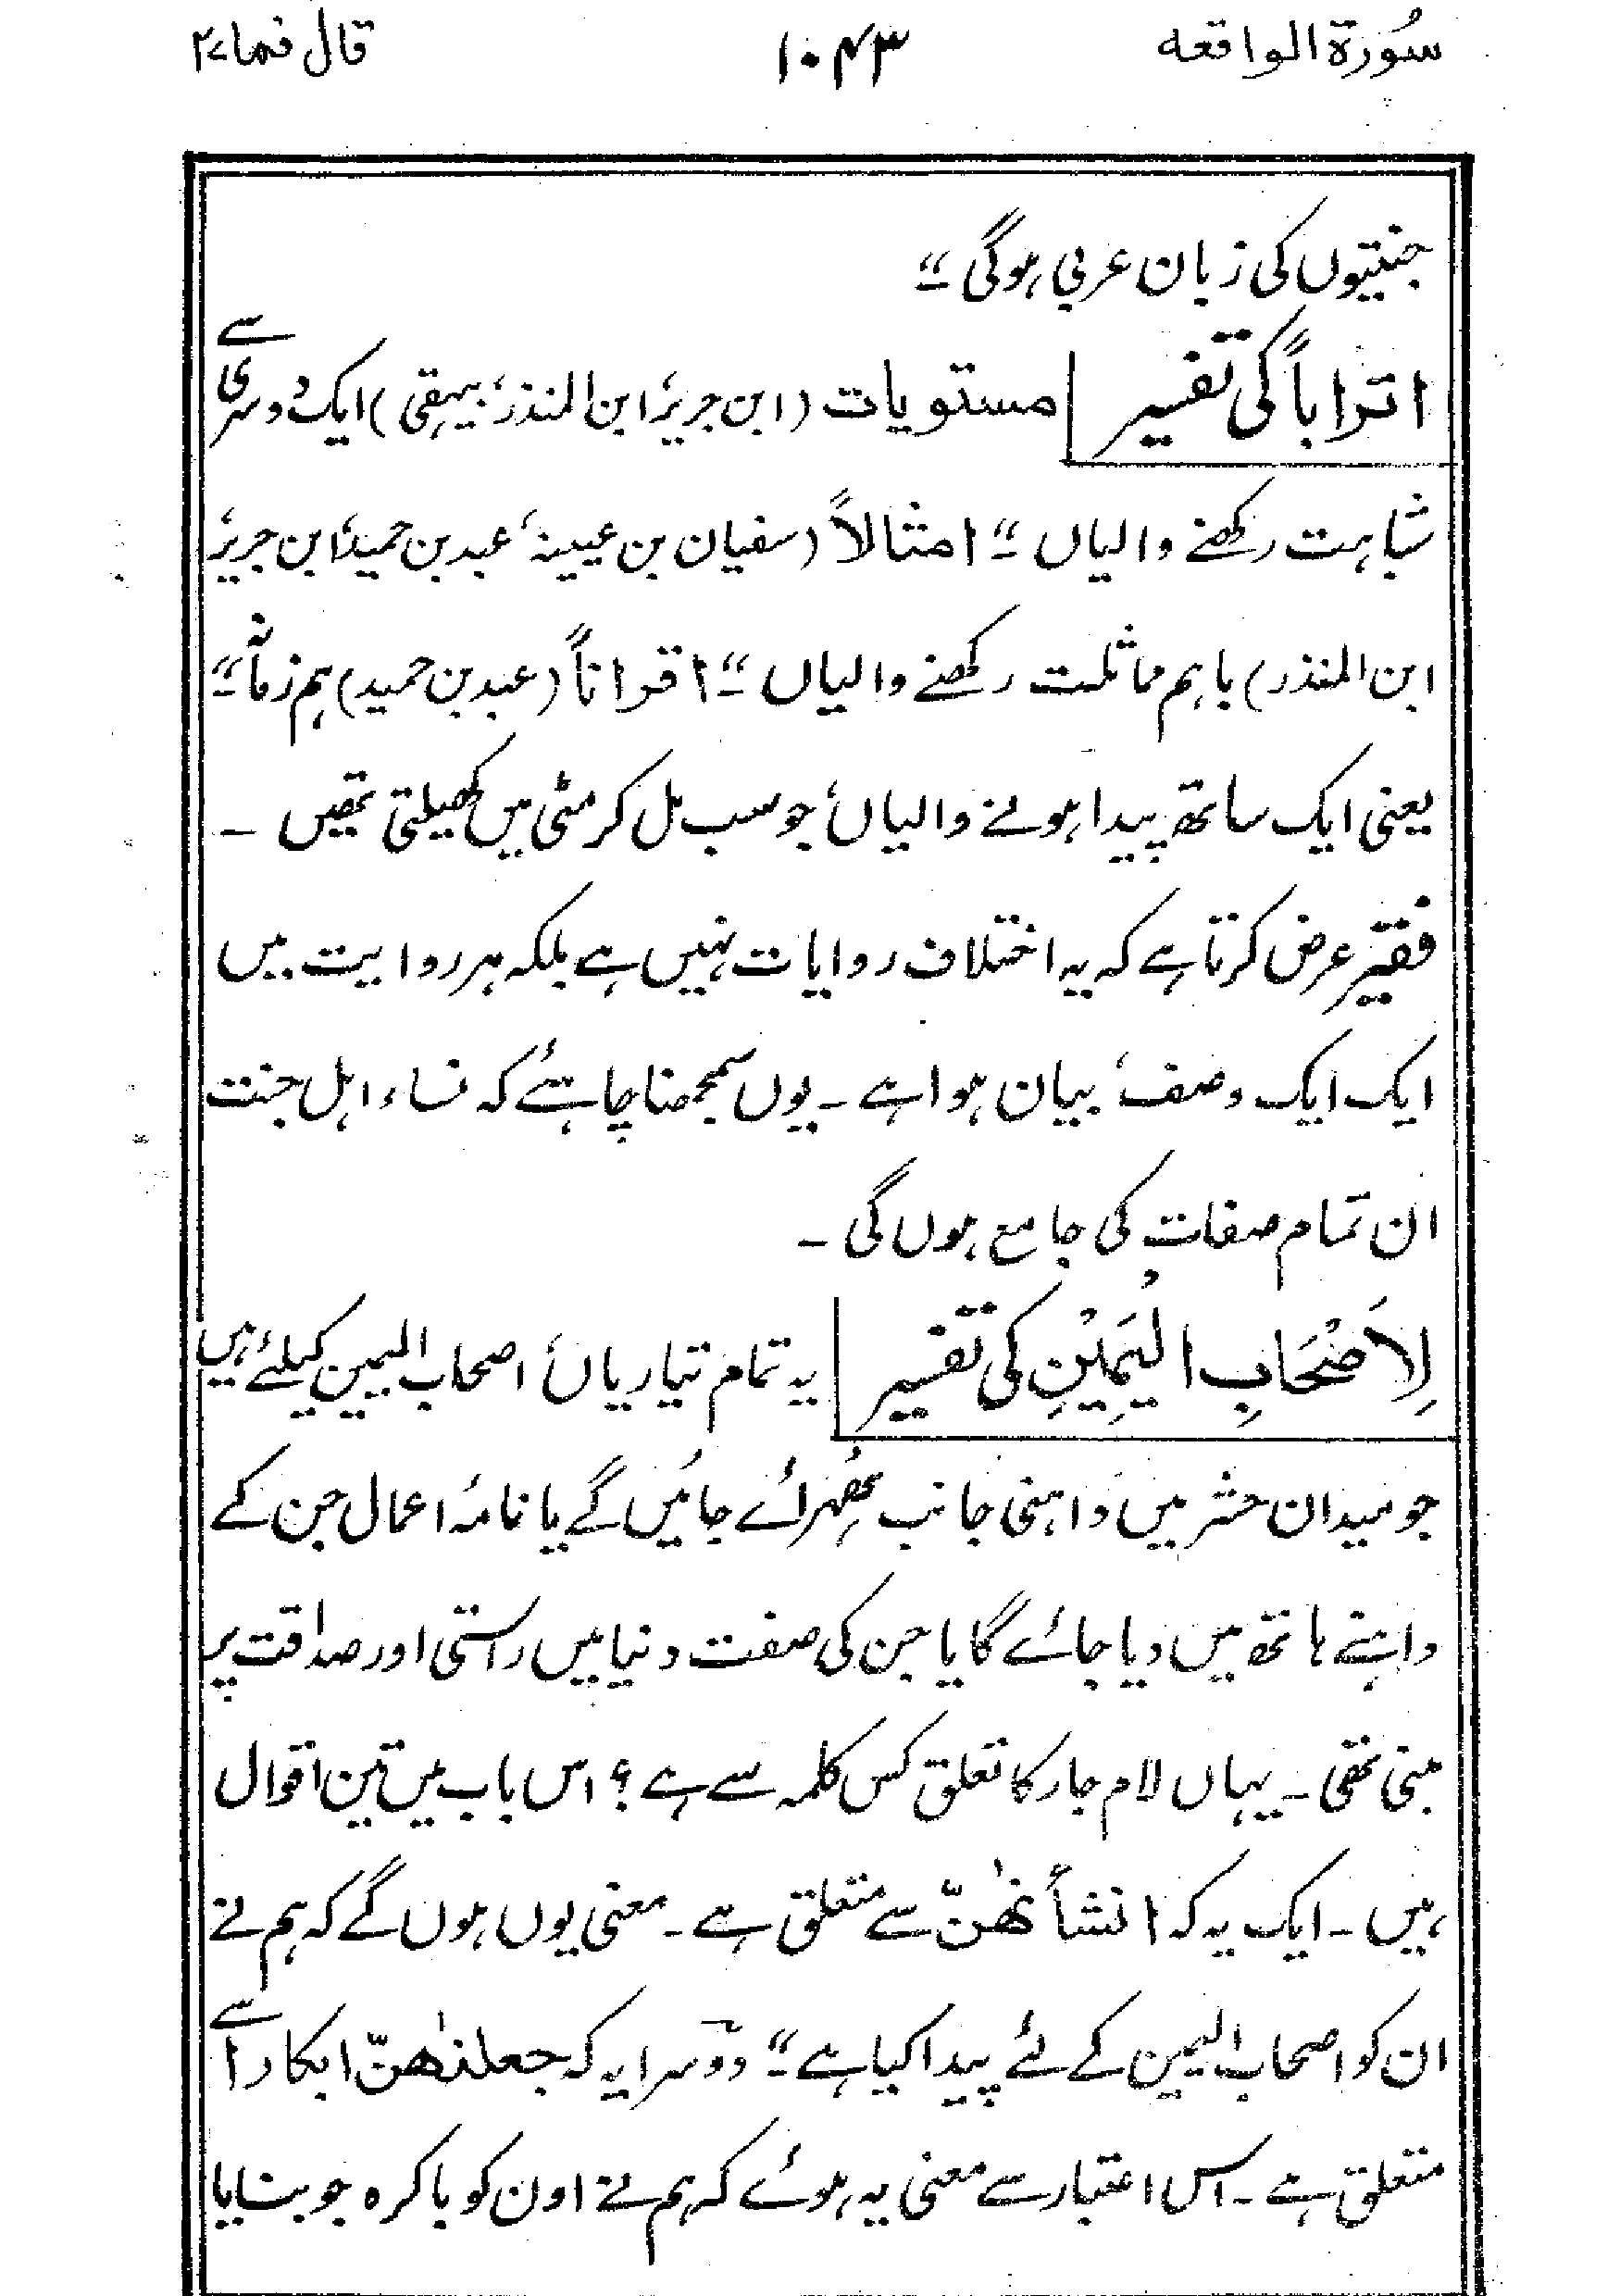 سُورۃ الواقعہ ۱۰۴۳ قال فما ۲۷
جنتیوں کی زبان عربی ہوگی ۔“
اترابًا کی تفسیر مستویات (ابن جریر، ابن المنذر، بیہقی) ایک دوسری سے
شباہت رکھنے والیاں ۔“ امثالاً (سفیان بن عیینہ، عبد بن حمید، ابن جریر،
ابن المنذر) باہم مماثلت رکھنے والیاں ۔“ اقراناً (عبد بن حمید) ہم زمانہ ۔“
یعنی ایک ساتھ پیدا ہونے والیاں، جو سب مل کر مٹی میں کھیلتی تھیں ۔
فقیر عرض کرتا ہے کہ یہ اختلاف روایات نہیں ہے بلکہ ہر روایت میں
ایک ایک وصف، بیان ہوا ہے ۔ یوں سمجھنا چاہئے کہ نساء اہل جنت
ان تمام صفات کی جامع ہوں گی ۔
لِاَصْحَابِ الْیَمِیْنِ کی تفسیر یہ تمام تیاریاں، اصحاب الیمین کیلئے ہیں
جو میدان حشر میں داہنی جانب ٹھہرائے جائیں گے یا نامۂ اعمال جن کے
داہنے ہاتھ میں دیا جائے گا یا جن کی صفت دنیا میں راستی اور صداقت پر
مبنی تھی ۔ یہاں لام جار کا تعلق کس کلمہ سے ہے ؟ اس باب میں تین اقوال
ہیں ۔ ایک یہ کہ انشأنٰھنّ سے متعلق ہے ۔ معنی یوں ہوں گے کہ ہم نے
ان کو اصحاب الیمین کے لئے پیدا کیا ہے ۔“ دوسرا یہ کہ جعلنٰھنّ ابکارا سے
متعلق ہے ۔ اس اعتبار سے معنی یہ ہوئے کہ ہم نے اون کو باکرہ جو بنایا